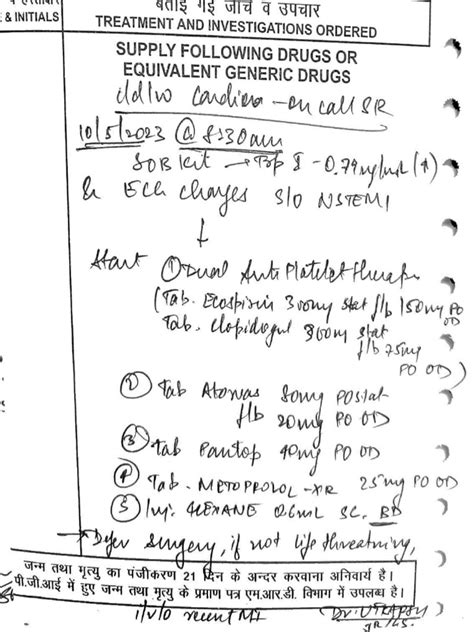 & INITIALS
बताई गई जाँच व उपचार
TREATMENT AND INVESTIGATIONS ORDERED
SUPPLY FOLLOWING DRUGS OR
EQUIVALENT GENERIC DRUGS
i/d/w Cardiena - on call SR
10/5/2023 @ 8:30am
SOB kit → Trop I - 0.79 ng/mL (↑)
& ECG changes S/O NSTEMI
↓
Start ① Dual Anti Platelet therapy
(Tab. Ecospirin 300mg stat f/b 150mg PO OD
Tab. Clopidogrel 300mg stat
f/b 75mg
PO OD)
② Tab Atorvas 80mg PO stat
f/b 20mg PO OD
③ Tab Pantop 40mg PO OD
④ Tab. METOPROLOL-XR 25mg PO OD
⑤ Inj. CLEXANE 0.6mL SC. BD
→ Defer surgery, if not life threatning,
जन्म तथा मृत्यु का पंजीकरण 21 दिन के अन्दर करवाना अनिवार्य है।
पी.जी.आई में हुए जन्म तथा मृत्यु के प्रमाण पत्र एम.आर.डी. विभाग में उपलब्ध है।
i/v/o recent MI
JR/